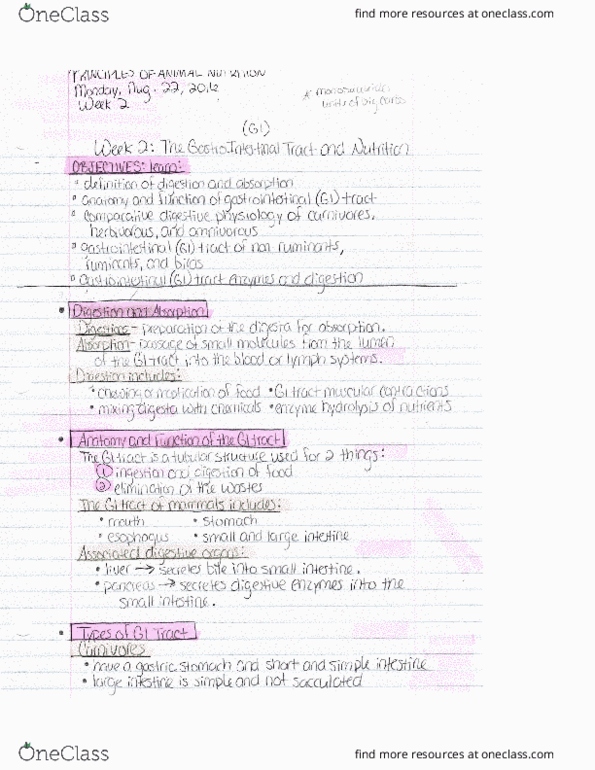 OneClass
find more resources at oneclass.com
PRINCIPLES OF ANIMAL NUTRITION
Monday, Aug. 22, 2016
Week 2
* monosaccharides
units of big carbs
(GI)
Week 2: The GastroIntestinal Tract and Nutrition
OBJECTIVES: learn:
definition of digestion and absorption
anatomy and function of gastrointestinal (GI) tract
comparative digestive physiology of carnivores,
herbivorous, and omnivorous
gastrointestinal (GI) tract of non ruminants,
ruminants, and birds
Gastrointestinal (GI) tract enzymes and digestion
• Digestion and Absorption
Digestions - preparation of the digesta for absorption.
Absorption - passage of small molecules from the lumen
of the GI tract into the blood or lymph systems.
Digestion includes:
• chewing or mastication of food • GI tract muscular contractions
• mixing digesta with chemicals • enzyme hydrolysis of nutrients
• Anatomy and Function of the GI tract
The GI tract is a tubular structure used for 2 things:
① ingestion and digestion of food
② elimination of the wastes
The GI tract of mammals includes:
• mouth • stomach
• esophagus • small and large intestine
Associated digestive organs:
• liver → secretes bile into small intestine.
• pancreas → secretes digestive enzymes into the
small intestine.
• Types of GI Tract
Carnivores
• have a gastric stomach and short and simple intestine
• large intestine is simple and not sacculated
OneClass
find more resources at oneclass.com